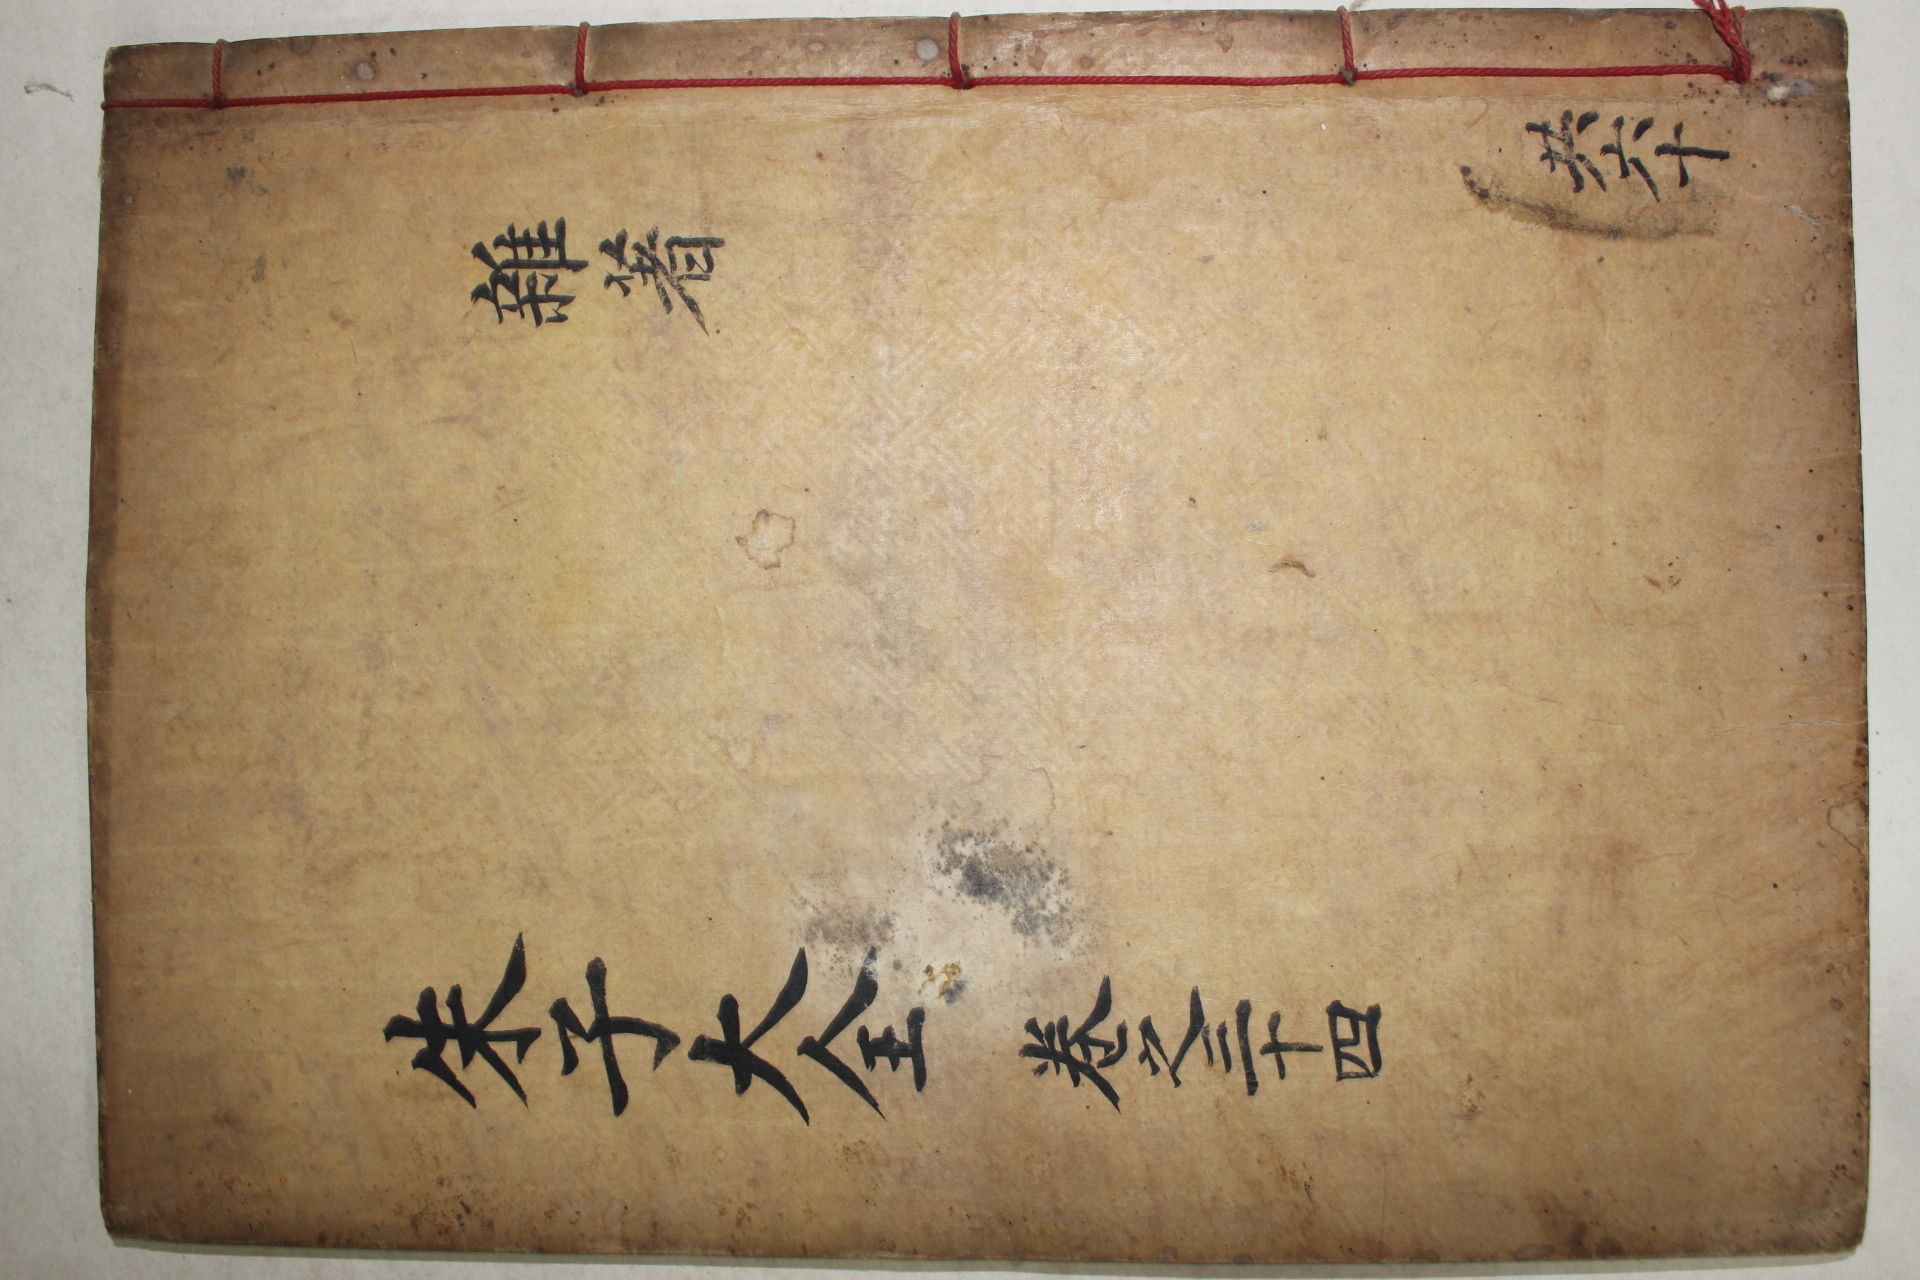 朱子大全 卷之三十四
雜著
共六十